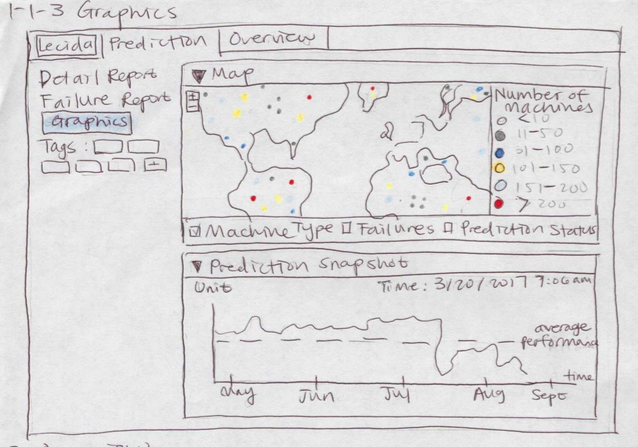 1-1-3 Graphics
Lecida Prediction Overview
Detail Report
Failure Report
Graphics
Tags :
+
▼ Map
+
Number of
machines
<10
11-50
51-100
101-150
151-200
>200
Machine Type Failures Prediction Status
▼ Prediction Snapshot
Unit Time : 3/20/2017 9:06am
average
performanc
time
May Jun Jul Aug Sept